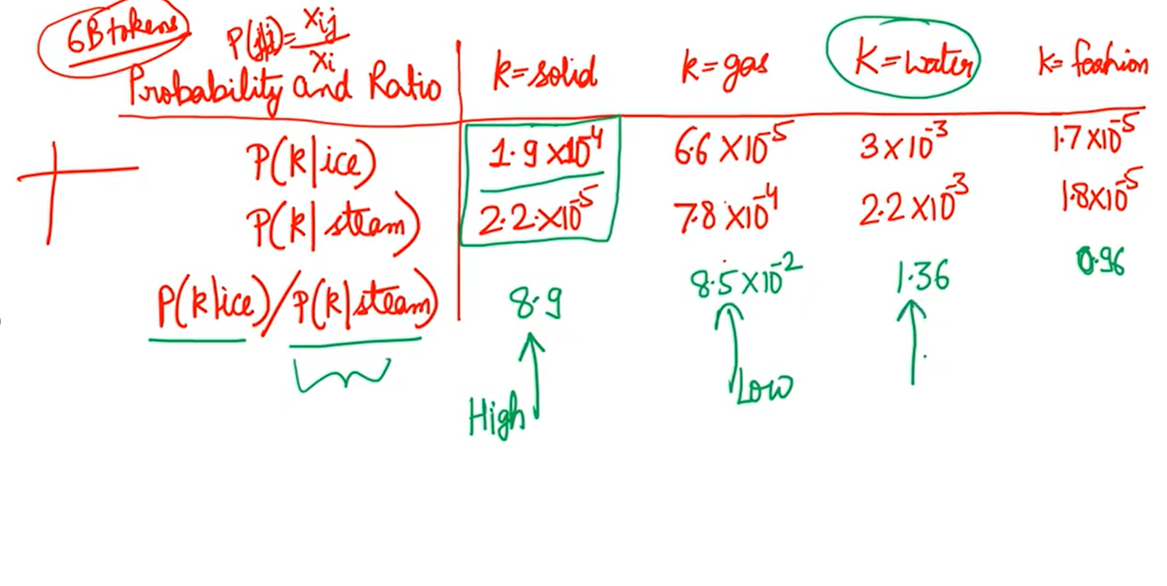 6B tokens P(j|i) = Xij/Xi
Probability and Ratio k=solid k=gas K=water k=fashion
P(k|ice) 1.9×10⁴ 6.6×10⁻⁵ 3×10⁻³ 1.7×10⁻⁵
P(k|steam) 2.2×10⁻⁵ 7.8×10⁻⁴ 2.2×10⁻³ 1.8×10⁻⁵
P(k|ice)/P(k|steam) 8.9 8.5×10⁻² 1.36 0.96
High Low